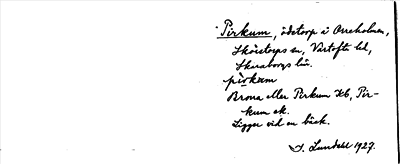 Pirkum, ödetorp å Orreholmen,
Sköstorps sn, Vartofta hd,
Skaraborgs län.
pìrkum
Brona eller Pirkum Kb, Pir-
kum ek.
Ligger vid en bäck.
S. Lundell 1927.